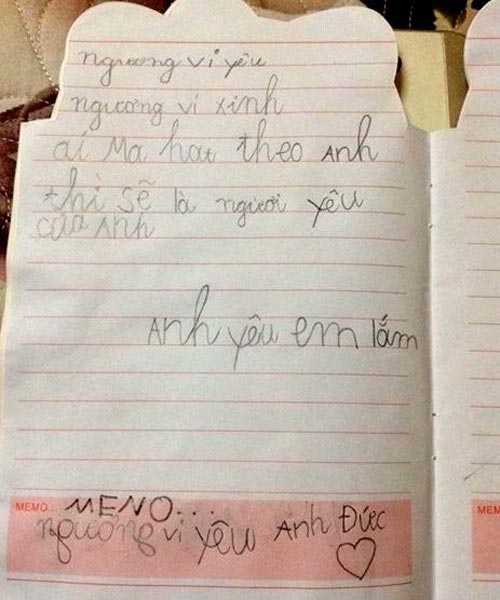 ngương vi yêu
ngương vi xinh
ai Ma hat theo Anh
thì sẽ là người yêu
của Anh
Anh yêu em lắm
MEMO... MENO...
ngương vi yêu Anh Đức
MEMO